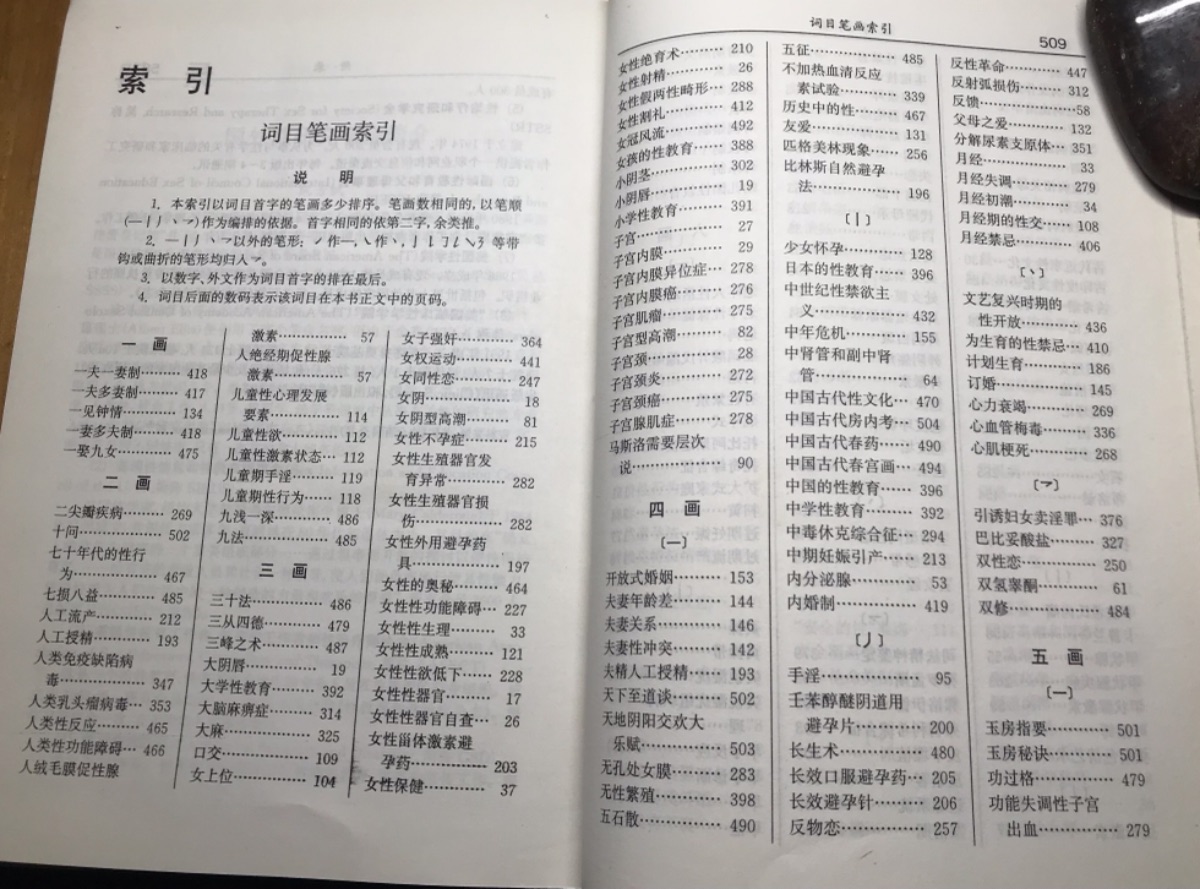 索 引
词目笔画索引
说 明
1. 本索引以词目首字的笔画多少排序。笔画数相同的,以笔顺
(一丨丿丶乛)作为编排的依据。首字相同的依第二字,余类推。
3. 以数字、外文作为词目首字的排在最后。
4. 词目后面的数码表示该词目在本书正文中的页码。
一 画
一夫一妻制……… 418
一夫多妻制……… 417
一见钟情………… 134
一妻多夫制……… 418
一娶九女………… 475
二 画
二尖瓣疾病……… 269
十问……………… 502
七十年代的性行
为……………… 467
七损八益………… 485
人工流产………… 212
人工授精………… 193
人类免疫缺陷病
毒……………… 347
人类乳头瘤病毒… 353
人类性反应……… 465
人类性功能障碍… 466
人绒毛膜促性腺
激素…………… 57
人绝经期促性腺
激素…………… 57
儿童性心理发展
要素…………… 114
儿童性欲………… 112
儿童性激素状态… 112
儿童期手淫……… 119
儿童期性行为…… 118
九浅一深………… 486
九法……………… 485
三 画
三十法…………… 486
三从四德………… 479
三峰之术………… 487
大阴唇…………… 19
大学性教育……… 392
大脑麻痹症……… 314
大麻……………… 325
口交……………… 109
女上位…………… 104
女子强奸………… 364
女权运动………… 441
女同性恋………… 247
女阴……………… 18
女阴型高潮……… 81
女性不孕症……… 215
女性生殖器官发
育异常………… 282
女性生殖器官损
伤……………… 282
女性外用避孕药
具……………… 197
女性的奥秘……… 464
女性性功能障碍… 227
女性性生理……… 33
女性性成熟……… 121
女性性欲低下…… 228
女性性器官……… 17
女性性器官自查… 26
女性甾体激素避
孕药…………… 203
女性保健………… 37
词目笔画索引
509
女性绝育术……… 210
女性射精………… 26
女性假两性畸形… 288
女性割礼………… 412
女冠风流………… 492
女孩的性教育…… 388
小阴茎…………… 302
小阴唇…………… 19
小学性教育……… 391
子宫……………… 27
子宫内膜………… 29
子宫内膜异位症… 278
子宫内膜癌……… 276
子宫肌瘤………… 275
子宫型高潮……… 82
子宫颈…………… 28
子宫颈炎………… 272
子宫颈癌………… 275
子宫腺肌症……… 278
马斯洛需要层次
说……………… 90
四 画
〔一〕
开放式婚姻……… 153
夫妻年龄差……… 144
夫妻关系………… 146
夫妻性冲突……… 142
夫精人工授精…… 193
天下至道谈……… 502
天地阴阳交欢大
乐赋…………… 503
无孔处女膜……… 283
无性繁殖………… 398
五石散…………… 490
五征……………… 485
不加热血清反应
素试验………… 339
历史中的性……… 467
友爱……………… 131
匹格美林现象…… 256
比林斯自然避孕
法……………… 196
〔丨〕
少女怀孕………… 128
日本的性教育…… 396
中世纪性禁欲主
义……………… 432
中年危机………… 155
中肾管和副中肾
管……………… 64
中国古代性文化… 470
中国古代房内考… 504
中国古代春药…… 490
中国古代春宫画… 494
中国的性教育…… 396
中学性教育……… 392
中毒休克综合征… 294
中期妊娠引产…… 213
内分泌腺………… 53
内婚制…………… 419
〔丿〕
手淫……………… 95
壬苯醇醚阴道用
避孕片………… 200
长生术…………… 480
长效口服避孕药… 205
长效避孕针……… 206
反物恋…………… 257
反性革命………… 447
反射弧损伤……… 312
反馈……………… 58
父母之爱………… 132
分解尿素支原体… 351
月经……………… 33
月经失调………… 279
月经初潮………… 34
月经期的性交…… 108
月经禁忌………… 406
〔丶〕
文艺复兴时期的
性开放………… 436
为生育的性禁忌… 410
计划生育………… 186
订婚……………… 145
心力衰竭………… 269
心血管梅毒……… 336
心肌梗死………… 268
〔乛〕
引诱妇女卖淫罪… 376
巴比妥酸盐……… 327
双性恋…………… 250
双氢睾酮………… 61
双修……………… 484
五 画
〔一〕
玉房指要………… 501
玉房秘诀………… 501
功过格…………… 479
功能失调性子宫
出血…………… 279